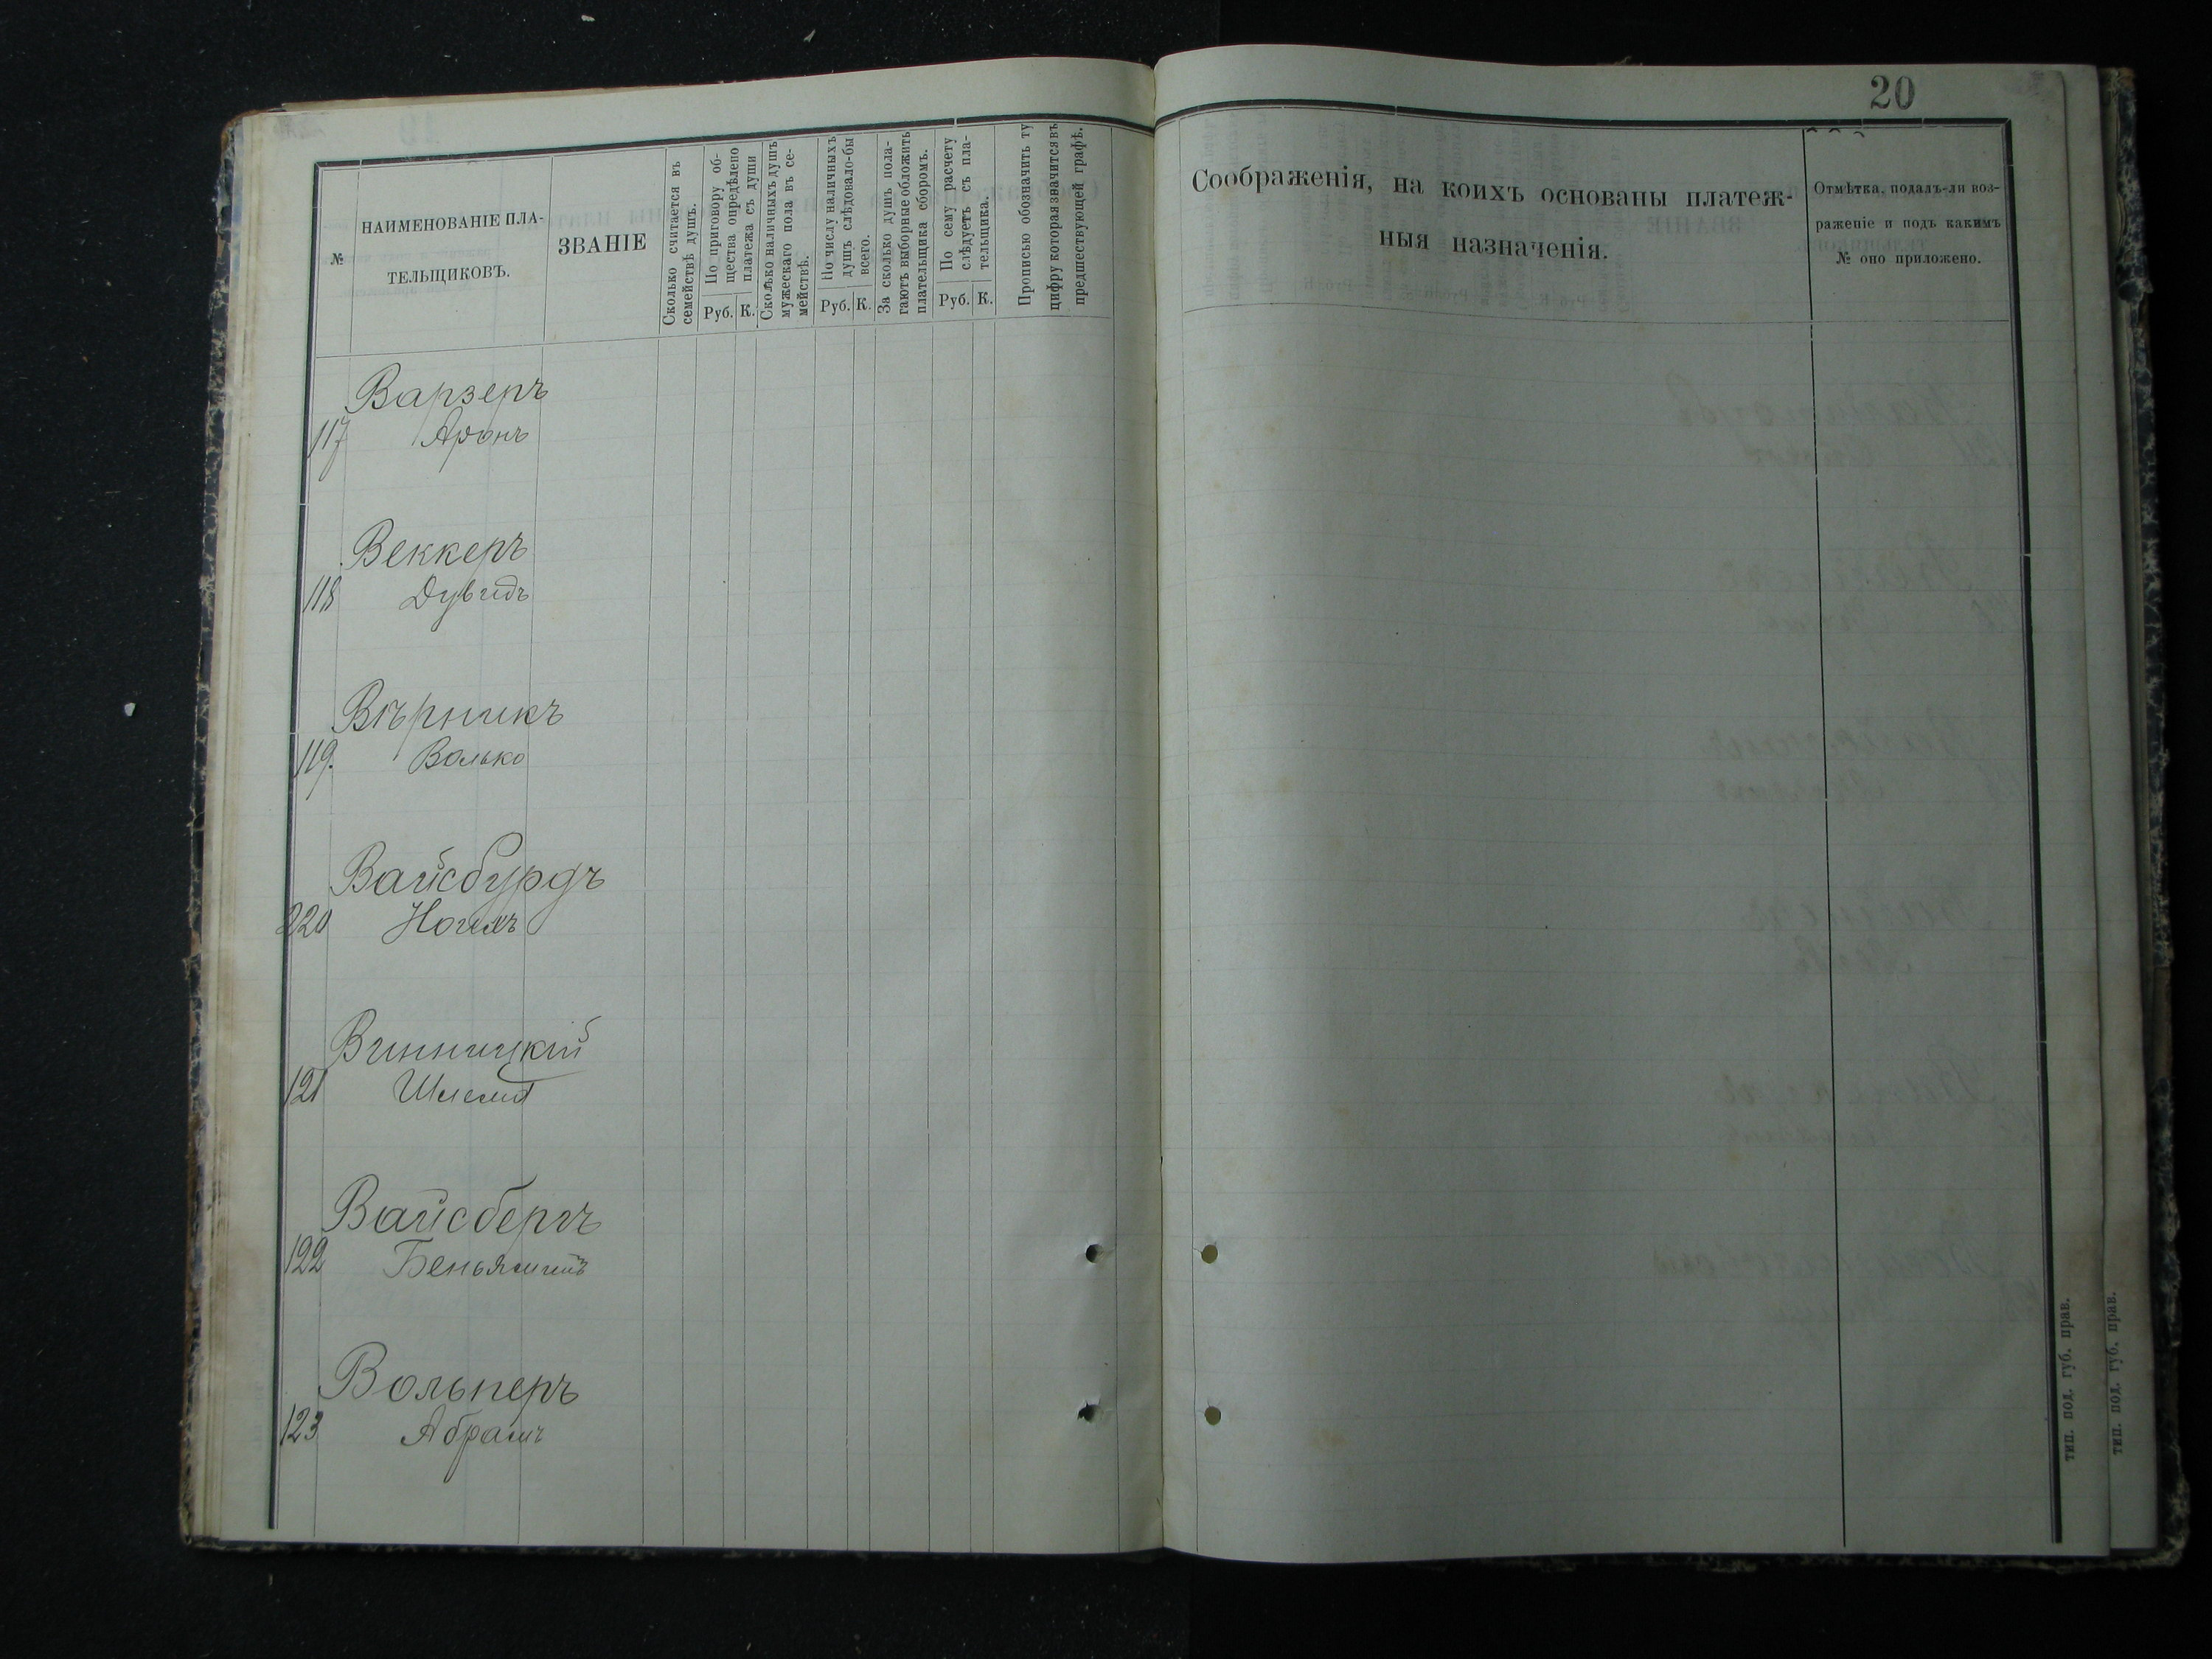 20
№
НАИМЕНОВАНІЕ ПЛА-
ТЕЛЬЩИКОВЪ.
ЗВАНІЕ
Сколько считается въ
семействѣ душъ.
По приговору об-
щества опредѣлено
платежа съ души
Руб. К.
Сколько наличныхъ душъ
мужескаго пола въ се-
мействѣ.
По числу наличныхъ
душъ слѣдовало-бы
всего.
Руб. К.
За сколько душъ пола-
гаютъ выборные обложить
плательщика сборомъ.
По сему расчету
слѣдуетъ съ пла-
тельщика.
Руб. К.
Прописью обозначить ту
цифру которая значится въ
предшествующей графѣ.
Соображенія, на коихъ основаны платеж-
ныя назначенія.
Отмѣтка, подалъ-ли воз-
раженіе и подъ какимъ
№ оно приложено.
Варзеръ
117 Аронъ
Веккеръ
118 Дувидъ
Вѣрникъ
119. Волько
Вайсбурдъ
220
Винницкій
121
Вайсбергъ
122 Беньяминъ
Вольперъ
123 Абрамъ
тип. под. губ. прав.
тип. под. губ. прав.